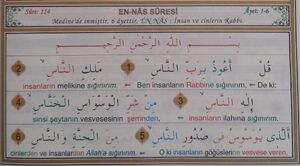 Sûre: 114 EN-NÂS SÛRESİ Âyet: 1-6
Medine'de inmiştir, 6 âyettir. EN-NÂS : İnsan ve cinlerin Rabbi.
بِسْمِ اللّٰهِ الرَّحْمٰنِ الرَّحِيمِ
قُلْ اَعُوذُ بِرَبِّ النَّاسِ 1 مَلِكِ النَّاسِ 2
insanların melikine sığınırım. ⇐ Ben insanların Rabbine sığınırım, ⇐ De ki:
اِلٰهِ النَّاسِ 3 مِنْ شَرِّ الْوَسْوَاسِ الْخَنَّاسِ 4
sinsi şeytanın vesvesesinin şerrinden, ⇐ insanların ilahına sığınırım.
اَلَّذِى يُوَسْوِسُ فِى صُدُورِ النَّاسِ 5 مِنَ الْجِنَّةِ وَ النَّاسِ 6
cinlerden ve insanlardan Allah'a sığınırım. ⇐ O ki insanların göğüslerine vesvese verir.